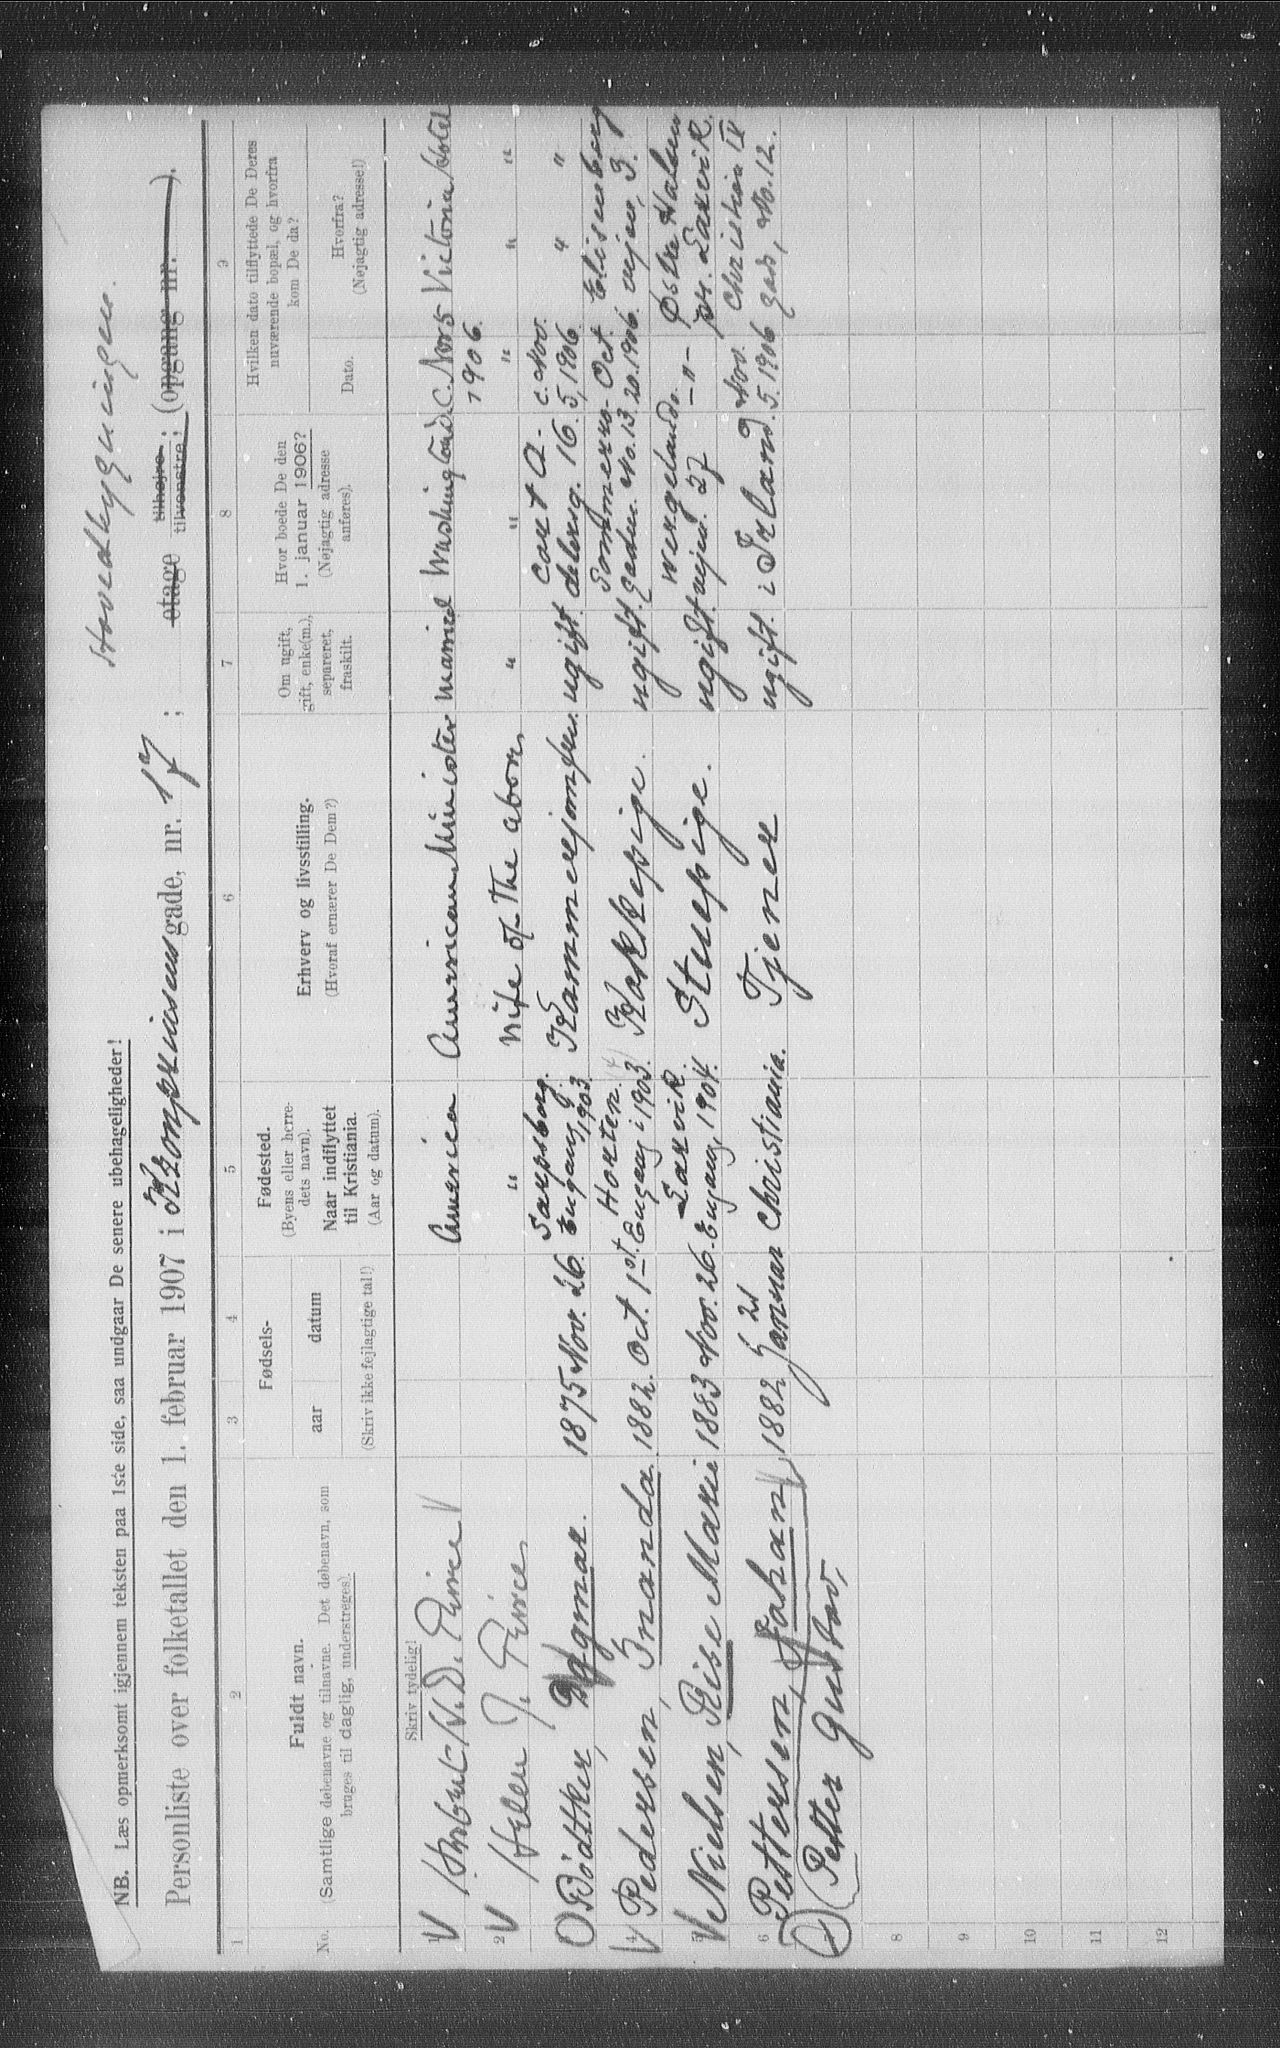 Hovedbygningen.
NB. Læs opmerksomt igjennem teksten paa 1ste side, saa undgaar De senere ubehageligheder!
Personliste over folketallet den 1. februar 1907 i Kronprinsens gade, nr. 17 ; etage tilhøjre ; tilvenstre ; (opgang nr. ).
1 2 3 4 5 6 7 8 9
No.
Fuldt navn.
(Samtlige døbenavne og tilnavne. Det døbenavn, som
bruges til daglig, understreges).
Fødsels-
aar datum
(Skriv ikke fejlagtige tal!)
Fødested.
(Byens eller herre-
dets navn).
Naar indflyttet
til Kristiania.
(Aar og datum).
Erhverv og livsstilling.
(Hvoraf ernærer De Dem?)
Om ugift,
gift, enke(m.),
separeret,
fraskilt.
Hvor boede De den
1. januar 1906?
(Nøjagtig adresse
anføres).
Hvilken dato tilflyttede De Deres
nuværende bopæl, og hvorfra
kom De da?
Dato.
Hvorfra?
(Nøjagtig adresse!)
Skriv tydelig!
1 Herbert H. D. Peirce America American Minister married Washington d.C. Nov 5 1906. Victoria Hotel
2 Helen J. Peirce " Wife of the above " " " " "
Bödtker, Dagmar. 1875 Nov. 26. Sarpsborg. 1903. Kammerjomfru. ugift. 16. c. Nov. 5, 1906. " "
4 Pedersen, Inanda. 1882. Oct. 1st. Horten. i 1903. Kokkepige. ugift. Sommerro- gaden. No. 13. Oct. 20. 1906. Elisenberg vejen, 3.
5 Nielsen, Rise Marie 1883 Nov. 26. Larvik. 1904. Stuepige. ugift. Wergelands- vejen. 27 - " - Østre Halsen pr. Larvik.
6 Pettersen, Johan 1882 Januar 21 Christiania. Tjener ugift. i Irland. Nov. 5. 1906 Christian IV gade, No. 12.
(Petter Gustav,
8
9
10
11
12